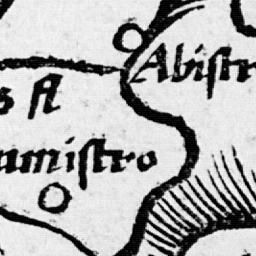 Abiſtr
s fl
umiſtro